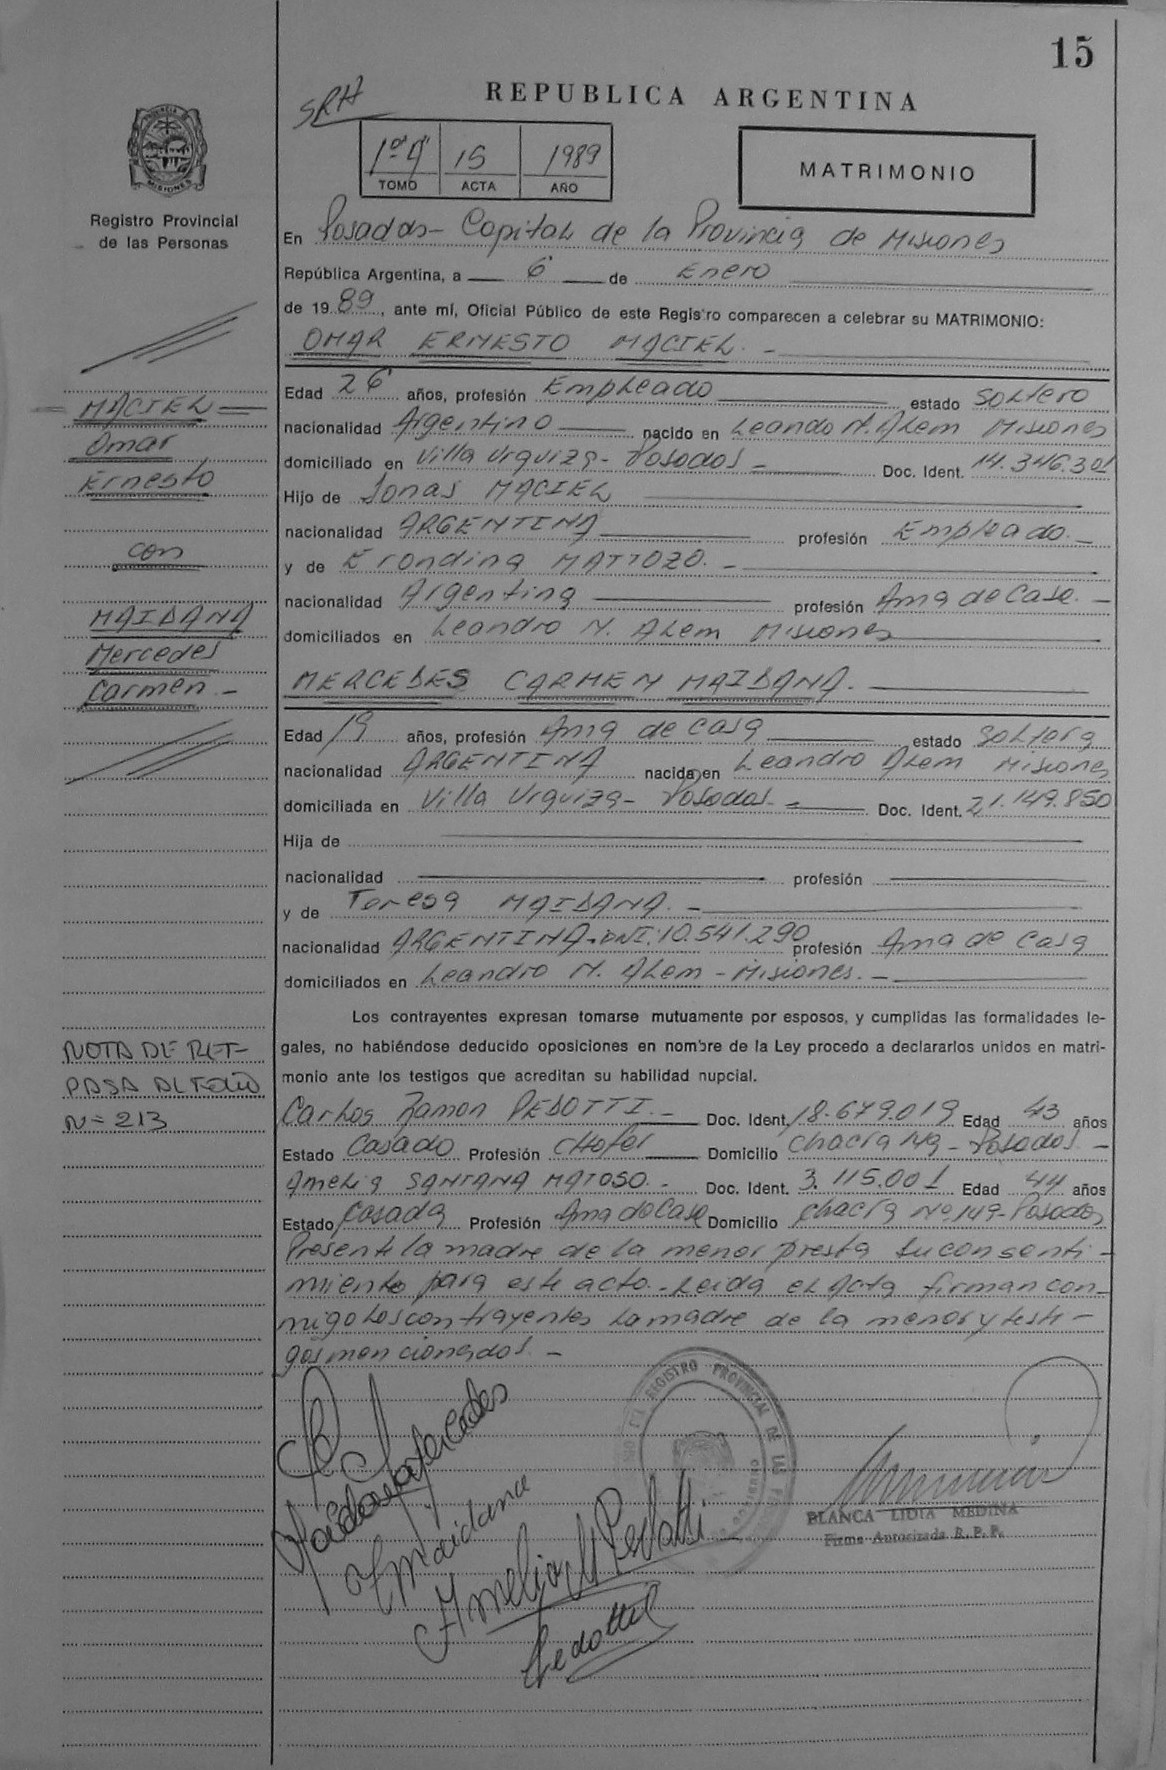 15
SRH
REPUBLICA ARGENTINA
PROVINCIA DE
MISIONES
1º "A" 15 1989
TOMO ACTA AÑO
MATRIMONIO
Registro Provincial
de las Personas
En Posadas - Capital de la Provincia de Misiones
República Argentina, a 6 de Enero
de 1989, ante mí, Oficial Público de este Registro comparecen a celebrar su MATRIMONIO:
OMAR ERNESTO MACIEL. -
Edad 26 años, profesión Empleado estado Soltero
nacionalidad Argentino nacido en Leandro N. Alem Misiones
domiciliado en Villa Urquiza - Posadas - Doc. Ident. 14.346.301
Hijo de Jonas MACIEL
nacionalidad ARGENTINA profesión Empleado. -
y de Erondina MATTOZO. -
nacionalidad Argentina profesión Ama de Casa. -
domiciliados en Leandro N. Alem Misiones
MERCEDES CARMEN MAIDANA. -
Edad 19 años, profesión Ama de casa estado Soltera
nacionalidad ARGENTINA nacida en Leandro Alem Misiones
domiciliada en Villa Urquiza - Posadas. - Doc. Ident. 21.149.850
Hija de
nacionalidad profesión
y de Teresa MAIDANA. -
nacionalidad ARGENTINA - DNI: 10.541.290 profesión Ama de casa
domiciliados en Leandro N. Alem - Misiones. -
Los contrayentes expresan tomarse mutuamente por esposos, y cumplidas las formalidades le-
gales, no habiéndose deducido oposiciones en nombre de la Ley procedo a declararlos unidos en matri-
monio ante los testigos que acreditan su habilidad nupcial.
Carlos Ramon PEDOTTI. - Doc. Ident. 18.679.019 Edad 43 años
Estado Casado Profesión CHofer Domicilio chacra 149 - Posadas. -
Amelia SANTANA MATOSO. - Doc. Ident. 3.115.001 Edad 44 años
Estado Casada Profesión Ama de Casa Domicilio chacra Nº 149 - Posadas
Presente la madre de la menor presta su consenti-
miento para este acto. - Leida el Acta firman con-
migo los contrayentes la madre de la menor y testi-
gos mencionados. -
MACIEL
Omar
Ernesto
con
MAIDANA
Mercedes
Carmen. -
NOTA DE RET-
PASA AL FOLIO
N= 213
Maidana Mercedes
T Maidana
Amelia M Pedotti
Pedotti
REGISTRO PROVINCIAL DE LAS
BLANCA LIDIA MEDINA
Firma Autorizada R. P. P.